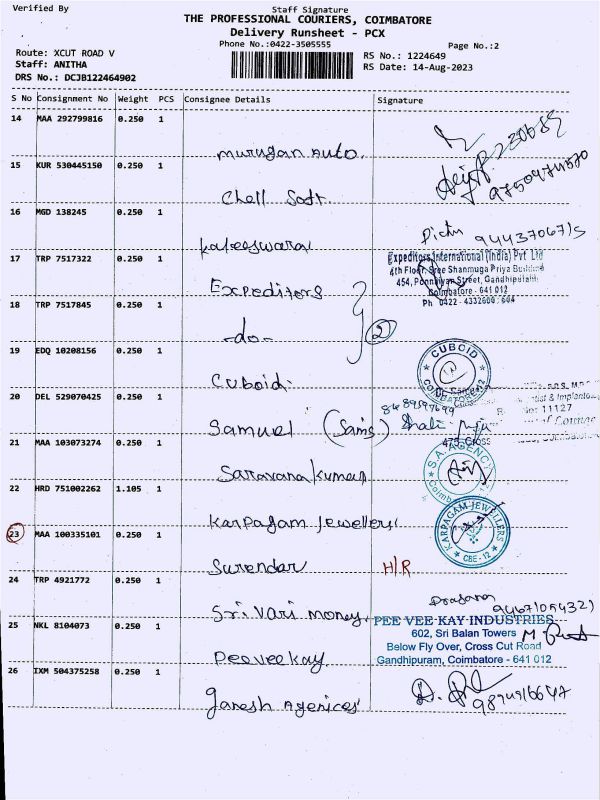 Verified By
Staff Signature
THE PROFESSIONAL COURIERS, COIMBATORE
Delivery Runsheet - PCX
Phone No.:0422-3505555
Page No.:2
Route: XCUT ROAD V
RS No.: 1224649
Staff: ANITHA
RS Date: 14-Aug-2023
DRS No.: DCJB122464902
S No Consignment No Weight PCS Consignee Details Signature
14 MAA 292799816 0.250 1
murugan Auto.
15 KUR 530445150 0.250 1
9750974570
Chell Soft.
16 MGD 138245 0.250 1
944370671s
Kaleeswarar
17 TRP 7517322 0.250 1
Expeditors International (India) Pvt Ltd
4th Floor, Sree Shanmuga Priya Building
454, Ponnaiyan Street, Gandhipuram
Coimbatore - 641 012
Ph 0422 - 4332600 : 604
Expeditors
18 TRP 7517845 0.250 1
-do-
2
19 EDQ 10208156 0.250 1
CUBOID
COIMBATORE-12
Cuboid.
20 DEL 529070425 0.250 1
8489597699
11127
Samuel (Sams)
21 MAA 103073274 0.250 1
475, Cross
S.A. AGENCY
Saravana Kumar
22 HRD 751002262 1.105 1
KARPAGAM JEWELLERS
CBE - 12
Karpagam Jewellers
23 MAA 100335101 0.250 1
Surendar
H/R
24 TRP 4921772 0.250 1
Prasana
Sri Vari Money
25 NKL 8104073 0.250 1
PEE VEE KAY INDUSTRIES
602, Sri Balan Towers
Below Fly Over, Cross Cut Road
Gandhipuram, Coimbatore - 641 012
Peeveekay
26 IXM 504375258 0.250 1
Ganesh Agenices